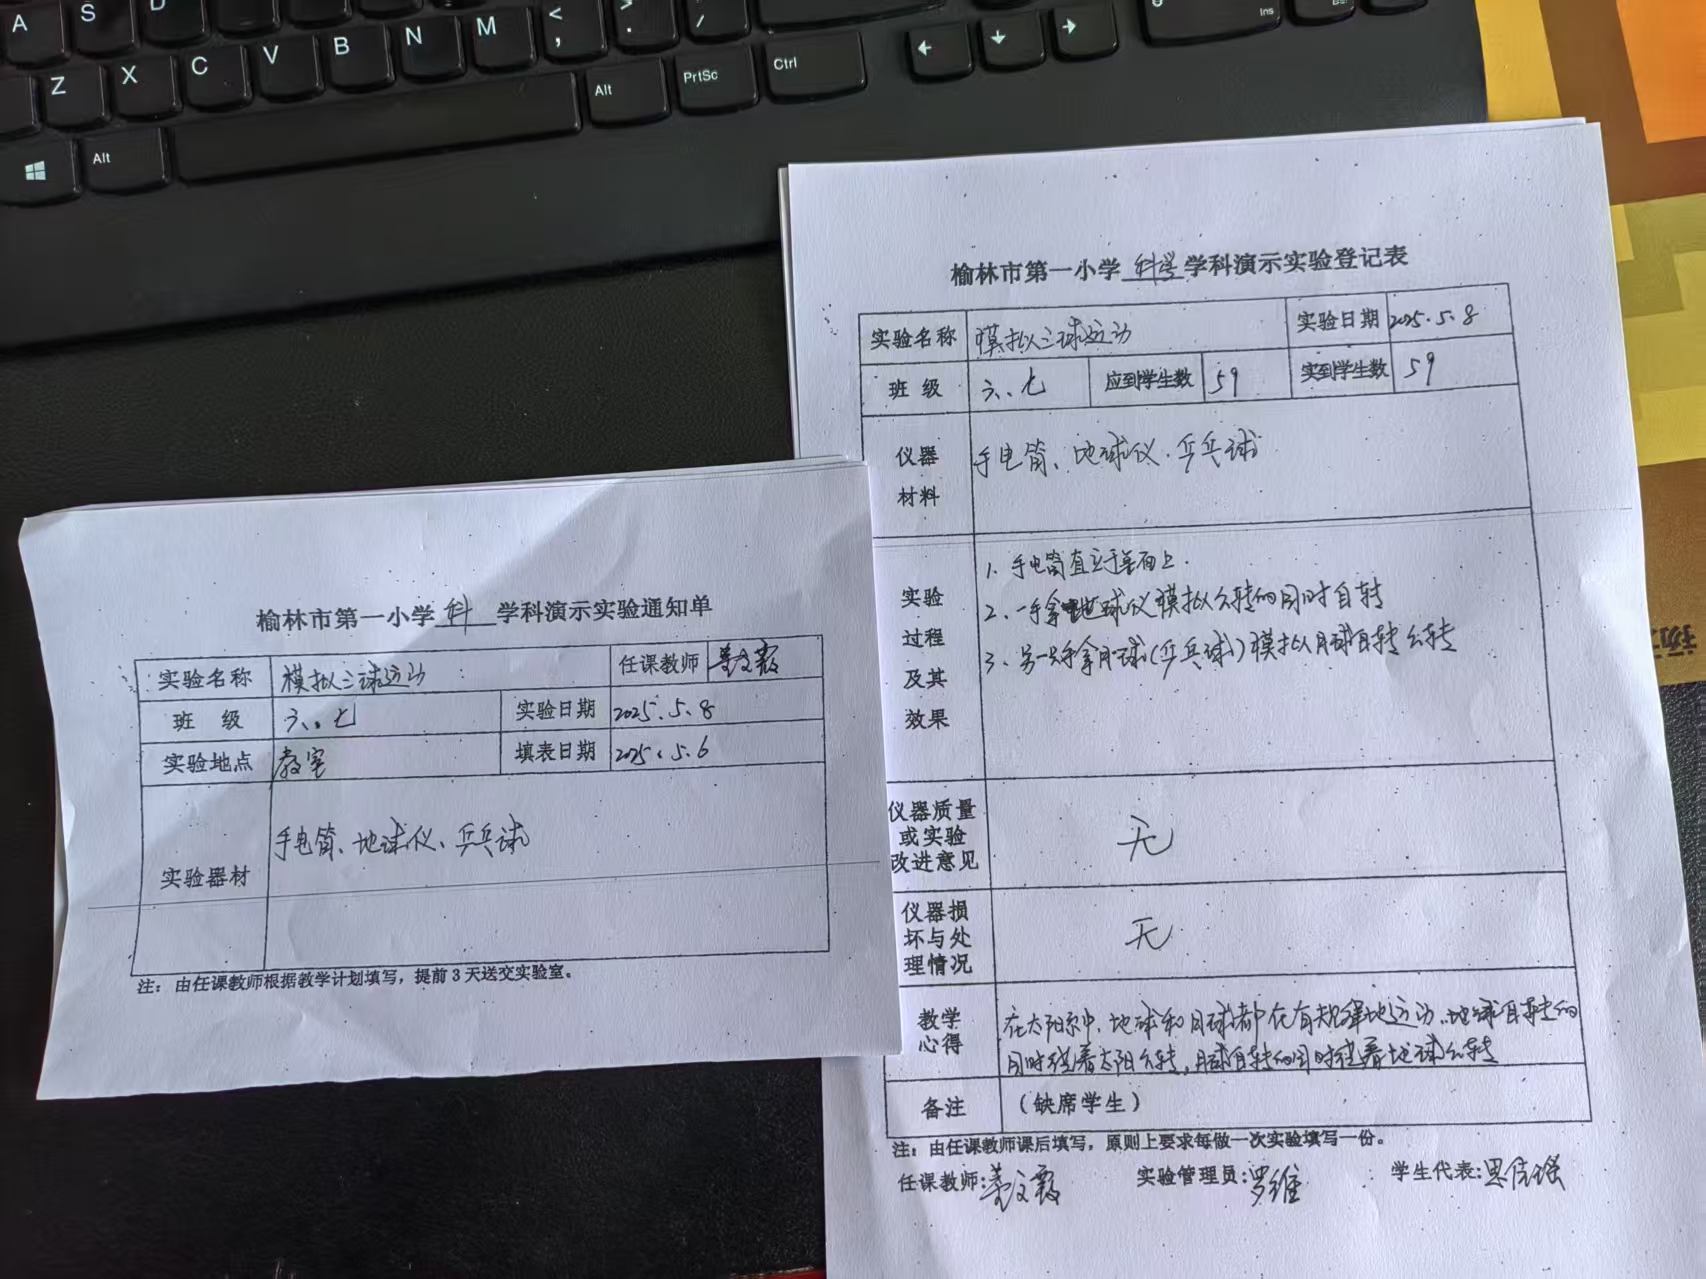 A
S
D
Z
X
C
V
B
N
M
<
,
>
.
/
Alt
Alt
PrtSc
Ctrl
Ins
榆林市第一小学 科 学科演示实验通知单
实验名称 模拟三球运动 任课教师
班 级 六、七 实验日期 2025.5.8
实验地点 教室 填表日期 2025.5.6
实验器材 手电筒、地球仪、乒乓球
注：由任课教师根据教学计划填写，提前3天送交实验室。
榆林市第一小学 科学 学科演示实验登记表
实验名称 模拟三球运动 实验日期 2025.5.8
班 级 六、七 应到学生数 59 实到学生数 59
仪器
材料
手电筒、地球仪、乒乓球
实验
过程
及其
效果
1、手电筒直立于桌面上.
2、一手拿地球仪模拟公转的同时自转
3、另一只手拿月球(乒乓球)模拟月球自转公转
仪器质量
或实验
改进意见
无
仪器损
坏与处
理情况
无
教学
心得
在太阳系中，地球和月球都在有规律地运动，地球自转的
同时绕着太阳公转，月球自转的同时绕着地球公转
备注 （缺席学生）
注：由任课教师课后填写，原则上要求每做一次实验填写一份。
任课教师: 实验管理员:罗维 学生代表: